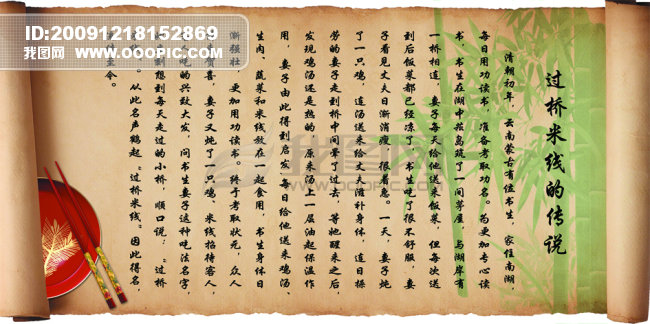 ID:20091218152869
我图网 www.OOOPIC.com
过桥米线的传说
清朝初年，云南蒙古有位书生，家住南湖，
每日用功读书，准备考取功名。为更加专心读
书，书生在湖中菰岛筑了一间茅屋，与湖岸有
一桥相连，妻子每天给他送饭菜，但每次送
到后饭菜都已经凉了，书生吃了很不舒服，妻
子看见丈夫日渐消瘦，很着急。一天，妻子炖
了一只鸡，连汤送来给丈夫滋补身体，连日操
劳的妻子走到桥中间晕了过去，等她醒来之后，
发现鸡汤还是热的，原来汤上一层油起保温作
用，妻子由此得到启发，每日给他送来鸡汤、
生肉、蔬菜和米线放在一起食用，书生身体日
渐强壮，更加用功读书。终于考取状元，众人
贺喜，妻子又炖了鸡、米线招待客人，
吃的兴致大发，问书生妻子这种吃法名字，
想到每天走过的小桥，顺口说：“过桥
从此名声鹤起，“过桥米线”因此得名，
至今。